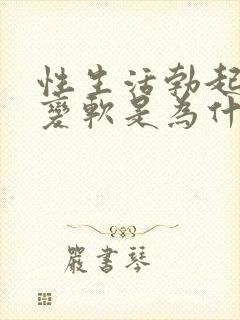 性生活勃起
变軟是為什
嚴書琴